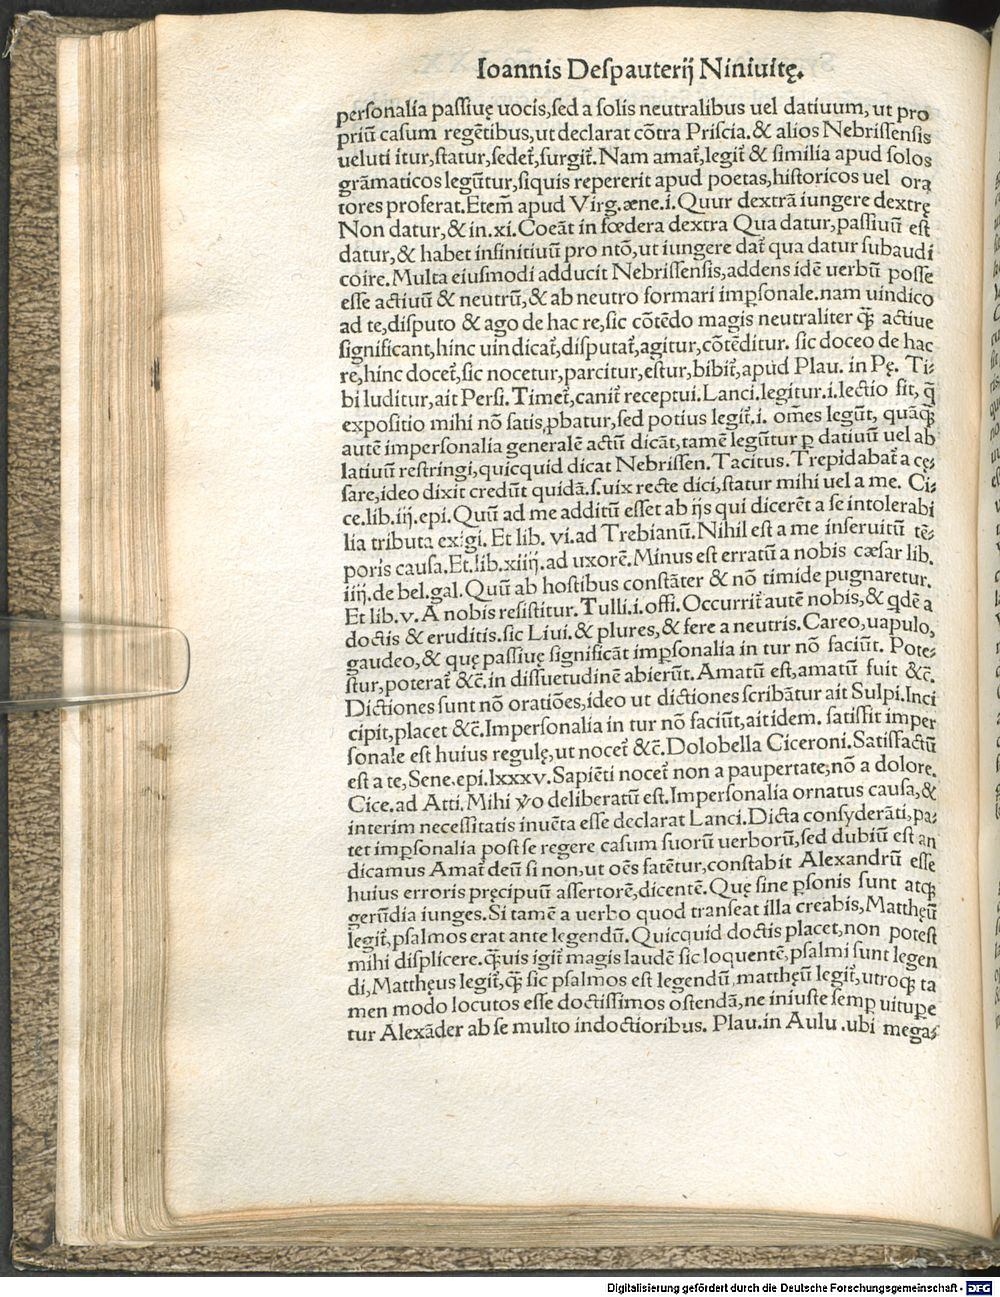 Ioannis Despauterij Niniuitę.
personalia passiuę uocis,sed a solis neutralibus uel datiuum, ut pro
priũ casum regẽtibus,ut declarat cõtra Priscia.& alios Nebrissensis
ueluti itur,statur,sedet᷑,surgit᷑. Nam amat᷑,legit᷑ & similia apud solos
grãmaticos legũtur,siquis repererit apud poetas,historicos uel ora
tores proferat.Etem̃ apud Virg.æne.i.Quur dextrã iungere dextrę
Non datur,& in.xi.Coeãt in fœdera dextra Qua datur,passiuũ est
datur,& habet infinitiuũ pro ntõ,ut iungere dat᷑ qua datur subaudi
coire.Multa eiusmodi adducit Nebrissensis,addens idẽ uerbũ posse
esse actiuũ & neutrũ,& ab neutro formari imꝑsonale.nam uindico
ad te,disputo & ago de hac re,sic cõtẽdo magis neutraliter q̃ꝫ actiue
significant,hinc uindicat᷑,disputat᷑,agitur,cõtẽditur. sic doceo de hac
re,hinc docet᷑,sic nocetur,parcitur,estur,bibit᷑,apud Plau. in Pę. Ti⸗
bi luditur,ait Persi. Timet᷑,canit᷑ receptui.Lanci.legitur.i.lectio fit, q̃
expositio mihi nõ satis ꝓbatur,sed potius legit᷑.i. om̃es legũt, quãq̃ꝫ
autẽ impersonalia generalẽ actũ dicãt,tamẽ legũtur ꝑ datiuũ uel ab
latiuũ restringi,quicquid dicat Nebrissen. Tacitus. Trepidabat᷑ a cę⸗
sare,ideo dixit credũt quidã.s.uix recte dici,statur mihi uel a me. Ci⸗
ce.lib.iij.epi.Quũ ad me additũ esset ab ijs qui dicerẽt a se intolerabi
lia tributa exigi. Et lib. vi.ad Trebianũ.Nihil est a me inseruitũ tẽ⸗
poris causa.Et.lib.xiiij.ad uxorẽ.Minus est erratũ a nobis cæsar lib.
iiij.de bel.gal. Quũ ab hostibus constãter & nõ timide pugnaretur.
Et lib.v.A nobis resistitur. Tulli.i.offi.Occurrit᷑ autẽ nobis,& qdẽ a
doctis & eruditis.sic Liui.& plures,& fere a neutris.Careo,uapulo,
gaudeo,& quę passiuę significãt imꝑsonalia in tur nõ faciũt. Pote⸗
stur,poterat᷑ &c̃.in dissuetudinẽ abierũt. Amatũ est,amatũ fuit &c̃.
Dictiones sunt nõ oratiões,ideo ut dictiones scribãtur ait Sulpi.Inci
cipit,placet &c̃.Impersonalia in tur nõ faciũt,ait idem. satisfit imper
sonale est huius regulę,ut nocet᷑ &c̃.Dolobella Ciceroni.Satisfactũ
est a te,Sene.epi.lxxxv.Sapiẽti nocet᷑ non a paupertate,nõ a dolore.
Cice.ad Atti.Mihi ꝟo deliberatũ est.Impersonalia ornatus causa,&
interim necessitatis inuẽta esse declarat Lanci.Dicta consyderãti,pa⸗
tet imꝑsonalia post se regere casum suorũ uerborũ,sed dubiũ est an
dicamus Amat᷑ deũ si non,ut oẽs fatẽtur,constabit Alexandrũ esse
huius erroris pręcipuũ assertorẽ,dicentẽ.Quę sine ꝑsonis sunt atq;
gerũdia iunges.Si tamẽ a uerbo quod transeat illa creabis,Matthęũ
legit᷑,psalmos erat ante legendũ.Quicquid doctis placet,non potest
mihi displicere.q̃ꝫuis igit᷑ magis laudẽ sic loquentẽ,psalmi sunt legen
di,Matthęus legit᷑,q̃ꝫ sic psalmos est legendũ,matthęũ legit᷑,utroq; ta
men modo locutos esse doctissimos ostendã,ne iniuste semꝑ uitupe
tur Alexãder ab se multo indoctioribus. Plau.in Aulu .ubi mega⸗
Digitalisierung gefördert durch die Deutsche Forschungsgemeinschaft - DFG